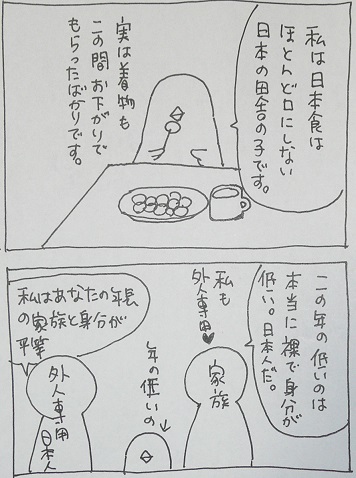 私は日本食は
ほとんど口にしない
日本の田舎の子です。
実は着物も
この間お下がりで
もらったばかりです。
この年の低いのは
本当に裸で身分が
低い。日本人だ。
私も
外人専用♥
家族
年の低いの
私はあなたの年長
の家族と身分が
平等
外人専用
日本人